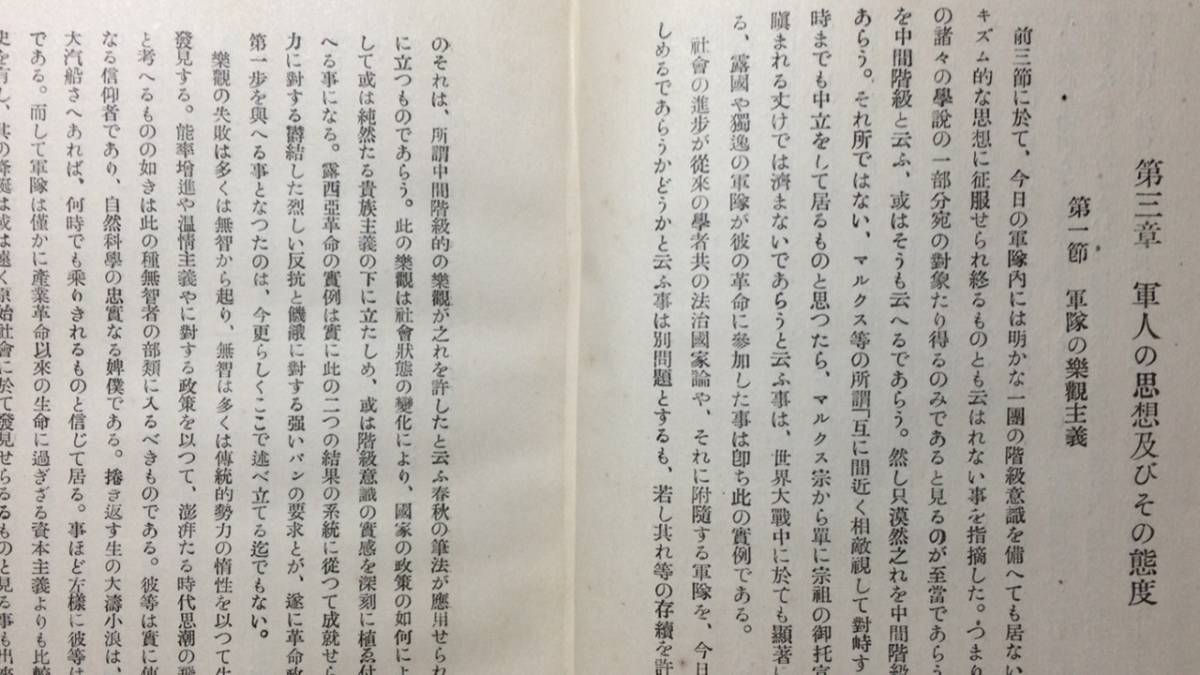 第三章　軍人の思想及びその態度
第一節　軍隊の樂觀主義
前三節に於て、今日の軍隊內には明かな一團の階級意識を備へても居ない
キズム的な思想に征服せられ終るものとも云はれない事を指摘した。つまり
の諸々の學說の一部分宛の對象たり得るのみであると見るのが至當であらう
を中間階級と云ふ、或はそうも云へるであらう。然し只漠然之れを中間階級
あらう。それ所ではない、マルクス等の所謂「互に間近く相敵視して對峙す
時までも中立をして居るものと思つたら、マルクス宗から單に宗祖の御托宣
嗔まれる丈けでは濟まないであらうと云ふ事は、世界大戰中に於ても顯著に
る、露國や獨逸の軍隊が彼の革命に參加した事は卽ち此の實例である。
社會の進步が從來の學者共の法治國家論や、それに附隨する軍隊を、今日
しめるであらうかどうかと云ふ事は別問題とするも、若し其れ等の存續を許
のそれは、所謂中間階級的の樂觀が之れを許したと云ふ春秋の筆法が應用せられ
に立つものであらう。此の樂觀は社會狀態の變化により、國家の政策の如何によ
して或は純然たる貴族主義の下に立たしめ、或は階級意識の實感を深刻に植ゑ付
へる事になる。露西亞革命の實例は實に此の二つの結果の系統に從つて成就せら
力に對する欝結した烈しい反抗と饑餓に對する强いパンの要求とが、遂に革命政
第一步を與へる事となつたのは、今更らしくここで述べ立てる迄でもない。
樂觀の失敗は多くは無智から起り、無智は多くは傳統的勢力の惰性を以つて生
發見する。能率增進や溫情主義やに對する政策を以つて、澎湃たる時代思潮の飛
と考へるものの如きは此の種無智者の部類に入るべきものである。彼等は實に傳
なる信仰者であり、自然科學の忠實なる婢僕である。捲き返す生の大濤小浪は、
大汽船さへあれば、何時でも乘りきれるものと信じて居る。事ほど左樣に彼等は
である。而して軍隊は僅かに產業革命以來の生命に過ぎざる資本主義よりも比較
史を有し、其の發端は或は遠く原始社會に於て發見せらるるものと見る事も出來